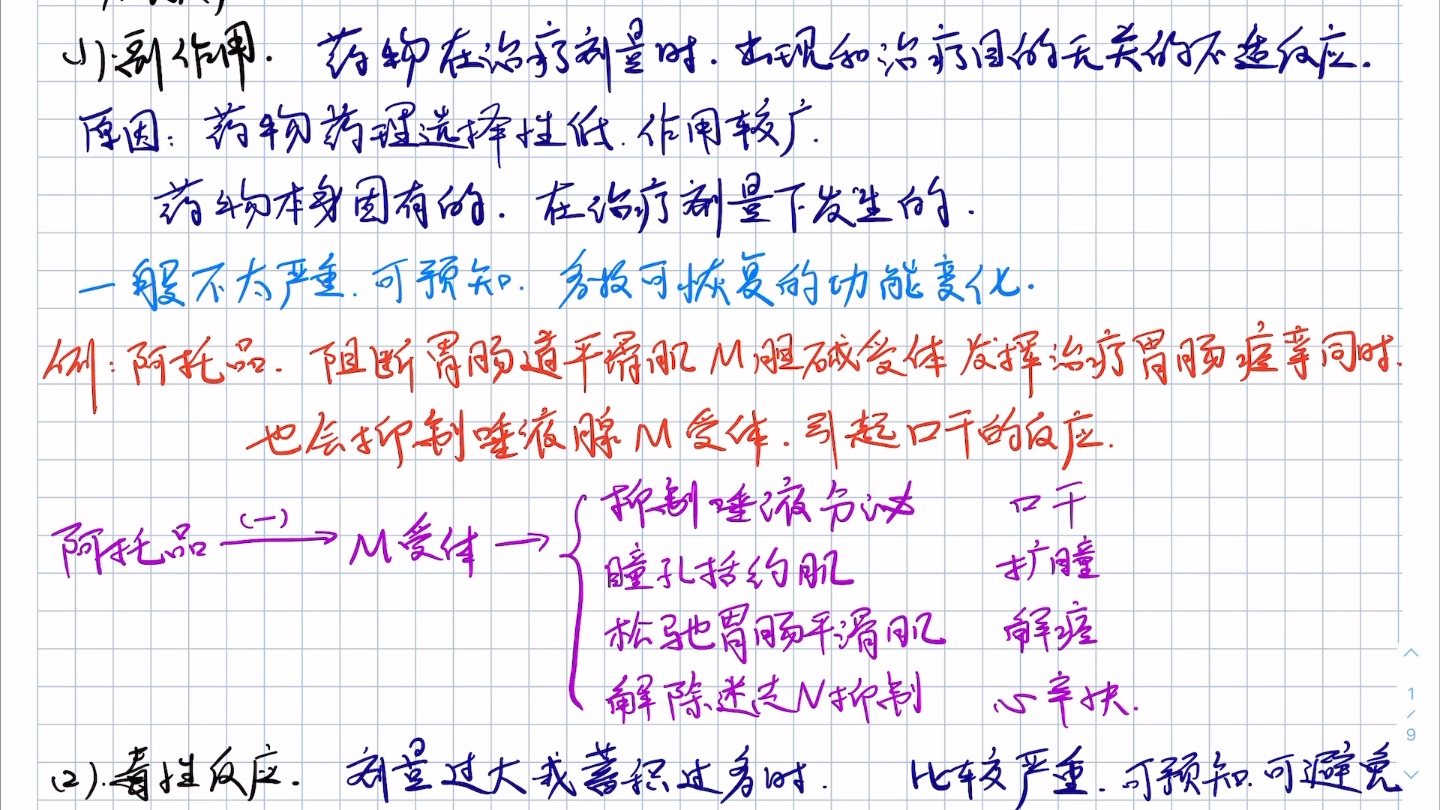 (1).副作用. 药物在治疗剂量时.出现和治疗目的无关的不适反应.
原因:药物药理选择性低.作用较广.
药物本身固有的.在治疗剂量下发生的.
一般不太严重.可预知.多数可恢复的功能变化.
例:阿托品.阻断胃肠道平滑肌M胆碱受体发挥治疗胃肠痉挛同时.
也会抑制唾液腺M受体.引起口干的反应.
阿托品 (一) → M受体 →
抑制唾液分泌 口干
瞳孔括约肌 扩瞳
松弛胃肠平滑肌 解痉
解除迷走N抑制 心率快.
(2).毒性反应. 剂量过大或蓄积过多时. 比较严重.可预知.可避免
1/9